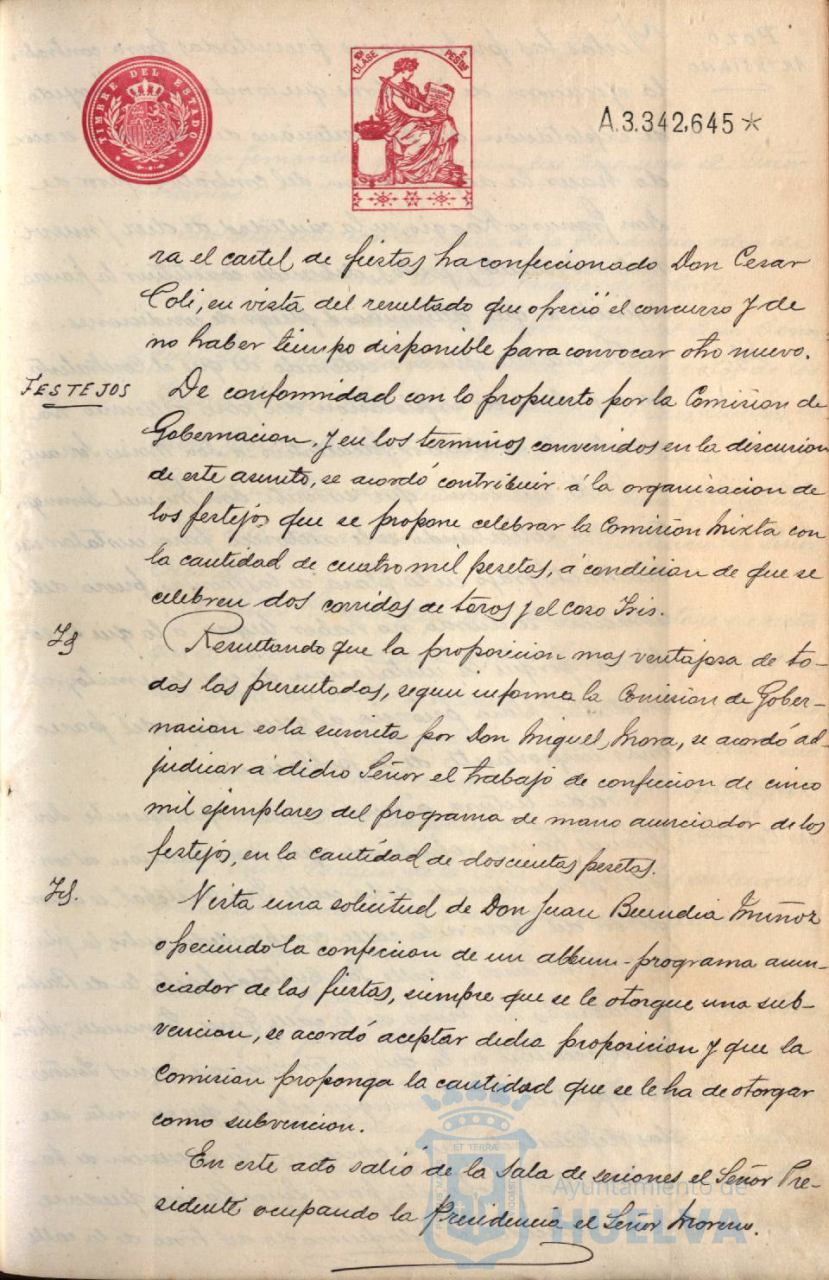 TIMBRE DEL ESTADO
10ª CLASE 2 PESETAS
A.3.342,645*
ra el cartel de fiestas ha confeccionado Don Cesar
Coli, en vista del resultado que ofreció el concurso y de
no haber tiempo disponible para convocar otro nuevo.
FESTEJOS
De conformidad con lo propuerto por la Comision de
Gobernacion, y en los terminos convenidos en la discusion
de este asunto, se acordó contribuir á la organizacion de
los festejos que se propone celebrar la Comision Mixta con
la cantidad de cuatro mil pesetas, á condicion de que se
celebren dos corridas de toros y el Coso Iris.
Id
Resultando que la proposicion mas ventajosa de to-
das las presentadas, segun informa la Comision de Gober-
nacion es la suscrita por Don Miguel Mora, se acordó ad-
judicar á dicho Señor el trabajo de confeccion de cinco
mil ejemplares del programa de mano anunciador de los
festejos, en la cantidad de doscientas pesetas.
Id.
Vista una solicitud de Don Juan Buendia Muñoz
ofreciendo la confeccion de un album-programa anun-
ciador de las fiestas, siempre que se le otorgue una sub-
vencion, se acordó aceptar dicha proposicion y que la
Comision proponga la cantidad que se le ha de otorgar
como subvencion.
En este acto salió de la Sala de sesiones el Señor Pre-
sidente ocupando la Presidencia el Señor Moreno.
Ayuntamiento de
HUELVA